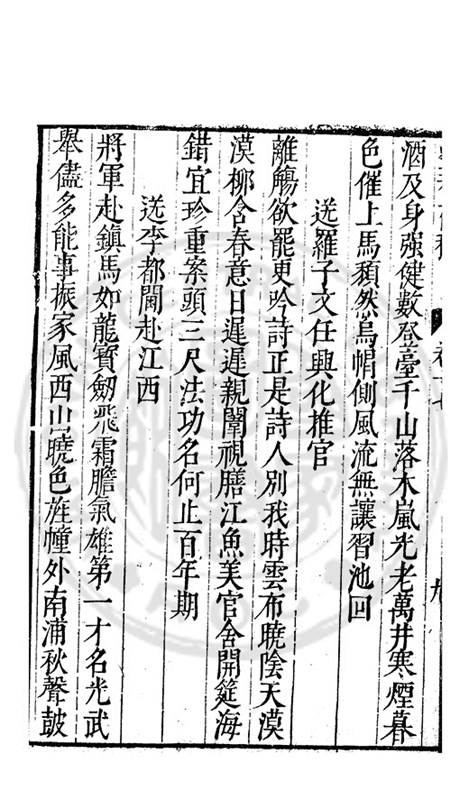 酒及身強健數登臺千山落木嵐光老萬井寒煙暮
色催上馬頹然烏帽側風流無讓習池回
送羅子文任興化推官
離觴欲罷更吟詩正是詩人別我時雲布曉陰天漠
漠柳含春意日遲遲親闈視膳江魚美官舍開筵海
錯宜珍重案頭三尺法功名何止百年期
送李都閫赴江西
將軍赴鎮馬如龍寶劒飛霜膽氣雄第一才名光武
舉儘多能事振家風西山曉色旌幢外南浦秋聲鼓